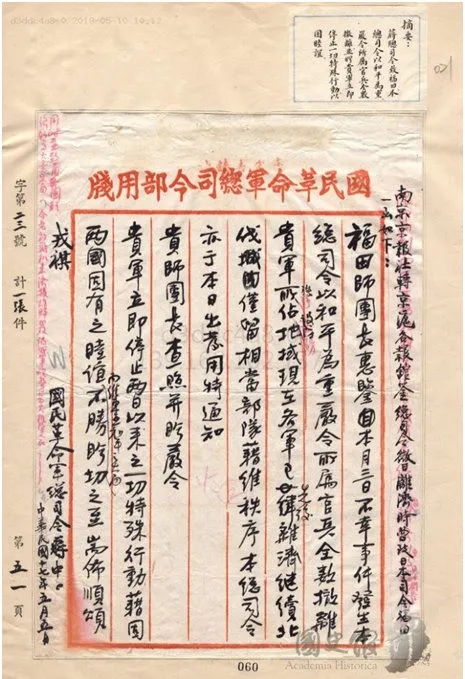 摘要：
蔣總司令致福田日本
總司令以和平為重
嚴令所屬官兵全數
撤離並盼貴軍立即
停止一切特殊行動以
固睦誼
國民革命軍總司令部用牋
南京京報社轉京滬各報館
一函如下：
福田師團長惠鑒因本月三日不幸事件發生本
總司令以和平為重嚴令所屬官兵全數撤離
貴軍所佔地域現在各軍已先後離濟繼續北
伐城內僅留相當部隊藉維秩序本總司令
亦于本日出發用特通知
貴師團長查照并盼嚴令
貴軍立即停止兩日以來之一切特殊行動藉固
兩國固有之睦誼不勝盼切之至耑佈順頌
戎祺
國民革命軍總司令蔣中〇
中華民國十七年五月五日
字第二三號 計一張件
第五一頁
060
國史館
Academia Historica
2019/05/10